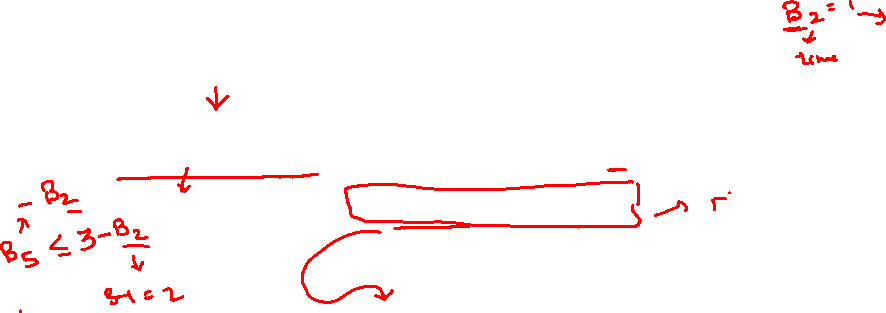 B₂ = 1 →
time
- B₂
B₅ ≤ 3 - B₂
3-1 = 2
r